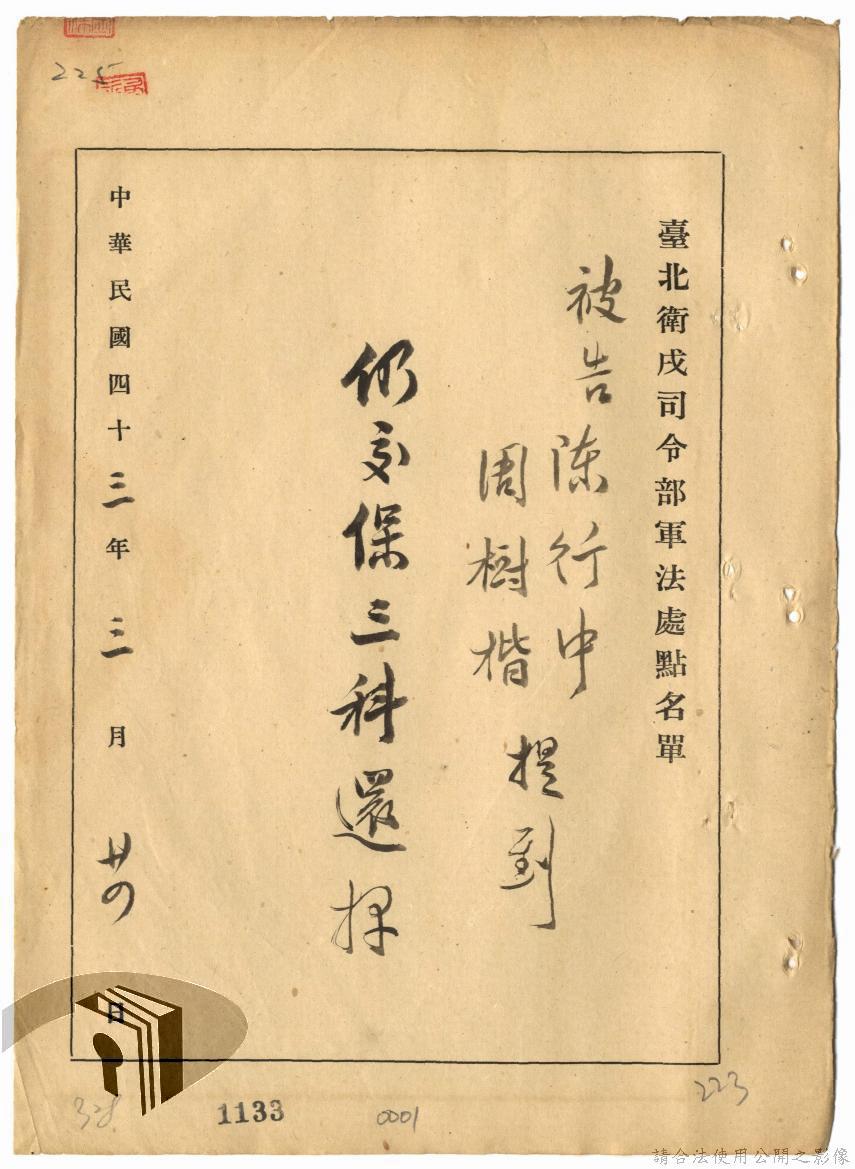 225
臺北衛戍司令部軍法處點名單
被告陳行中
周樹楷
提到
仍交保三科還押
中華民國四十三年三月廿四日
328
1133
0001
223
請合法使用公開之影像